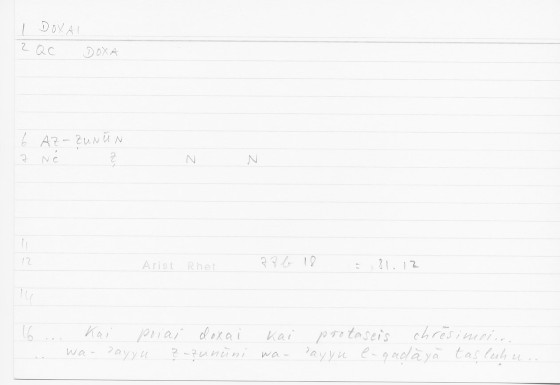 1 DOXAI
2 QC DOXA
6 AẒ-ẒUNŪN
7 NC Ẓ N N
11
12 Arist Rhet 77b 18 = 81.12
14
16 ... kai poiai doxai kai protaseis chrēsimoi...
.. wa-ʾayyu ẓ-ẓunūni wa-ʾayyu l-qaḍāyā taṣluḥu...